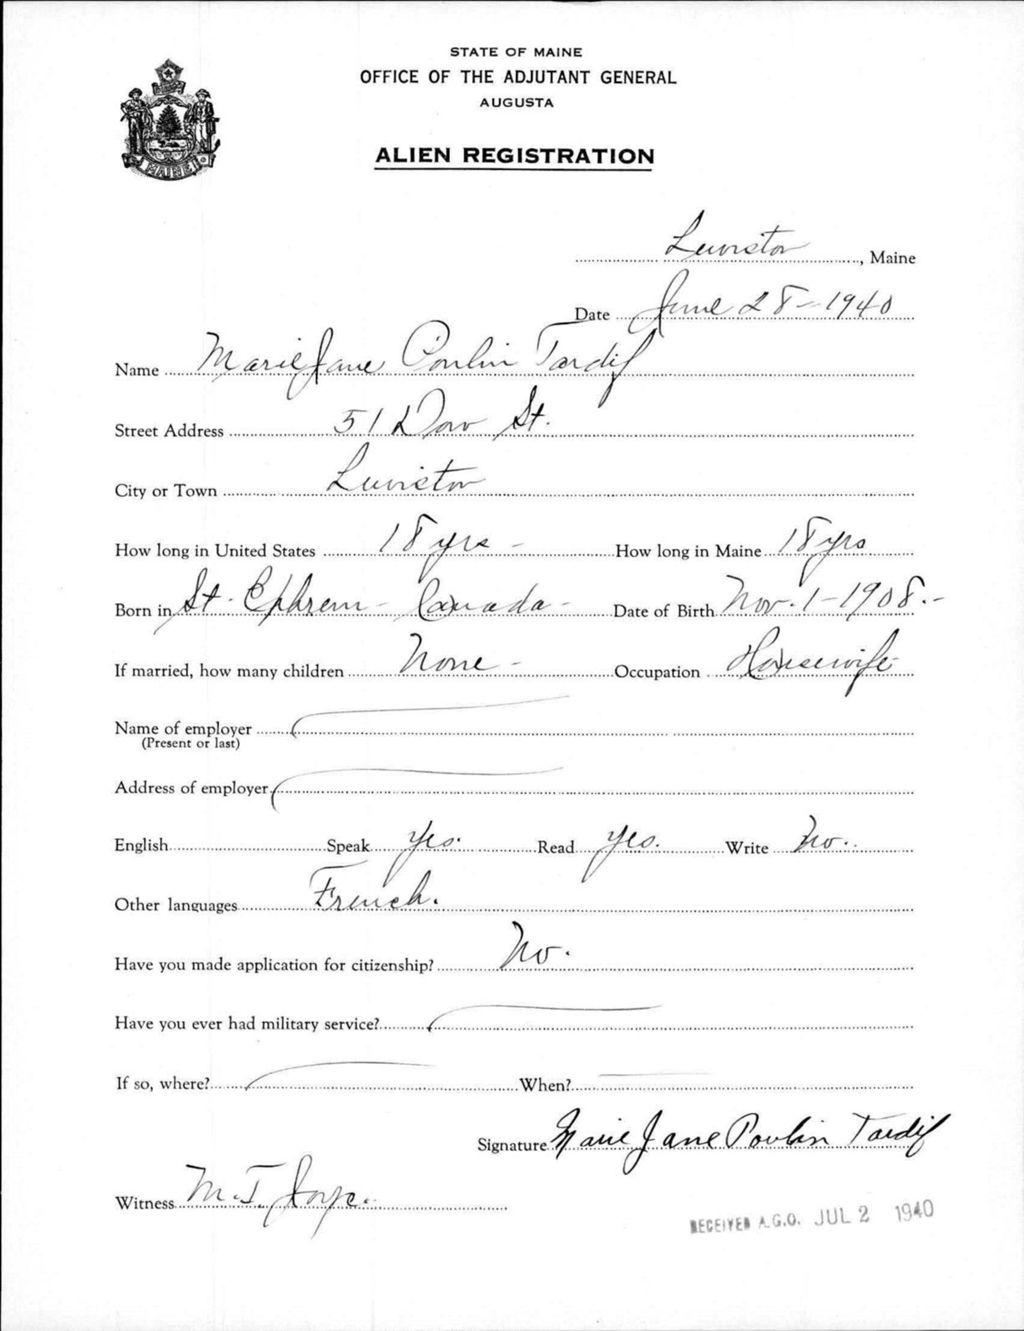 STATE OF MAINE
OFFICE OF THE ADJUTANT GENERAL
AUGUSTA
ALIEN REGISTRATION
MAINE
Lewiston, Maine
Date June 28-1940
Name Marie Jane Poulin Tardif
Street Address 51 Dow St.
City or Town Lewiston
How long in United States 18 yrs - How long in Maine 18 yrs
Born in St. Ephrem - Canada - Date of Birth Nov. 1-1908.-
If married, how many children None - Occupation Housewife
Name of employer
(Present or last)
Address of employer
English Speak Yes. Read Yes. Write No.
Other languages French.
Have you made application for citizenship? No.
Have you ever had military service?
If so, where? When?
Signature Marie Jane Poulin Tardif
Witness M. T. Joyce.
RECEIVED A.G.O. JUL 2 1940